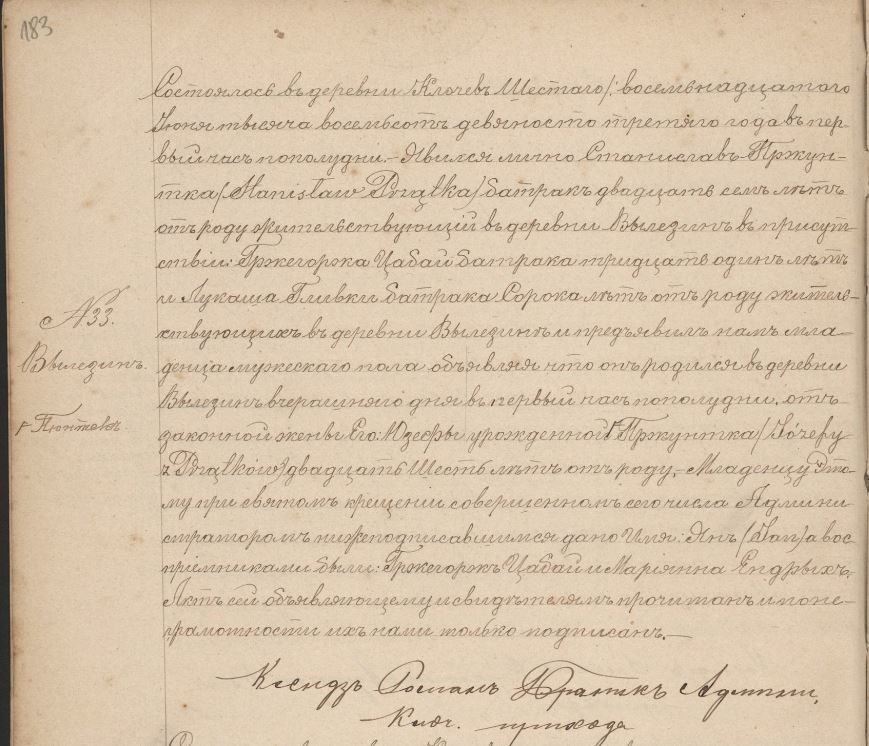 183
Состоялось въ деревни Ключевъ Шестаго/: восемьнадцатого
Іюня тысяча восемьсотъ девяносто третяго года въ пер-
вый часъ пополудни.- Явился лично Станиславъ Пржун-
тка (Stanisław Prządka) батракъ двадцать семь лѣтъ
отъ роду жительствующій въ деревни Вылезинъ въ присут-
ствіи: Гржегоржа Цабай батрака тридцать одинъ лѣтъ
и Лукаша Гливки батрака Сорока лѣтъ отъ роду житель-
ствующихъ въ деревни Вылезинъ и предъявилъ намъ мла-
денца мужескаго пола объявляя что онъ родился въ деревни
№ 33.
Вылезинъ.
Вылезинъ вчерашняго дня въ первый часъ пополудни. отъ
законной жены Его: Юзефы урожденной Пржунтка (Józefy
z Prządków) двадцать Шесть лѣтъ отъ роду.- Младенцу Это-
му при святомъ крещеніи совершенномъ сего числа Админи
страторомъ нижеподписавшимся дано Имя: Янъ (Jan) а вос
пріемниками были: Гржегоржъ Цабай и Маріянна Ендрыхъ.
Актъ сей объявляющему и свидѣтелямъ прочитанъ и по не-
грамотности ихъ нами только подписанъ.—
Ксендзъ Романъ Админ.
Ключ. прихода